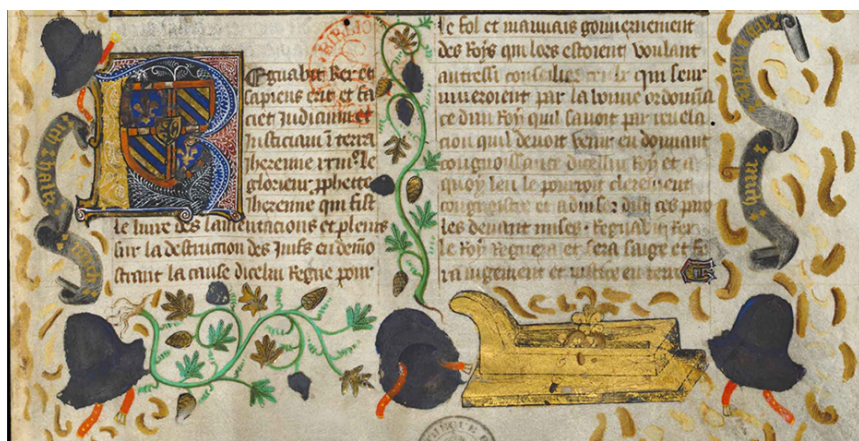 Regnabit Rex et
sapiens erit et fa
ciet Judicium et
Justiciam i terra
Jheremie
le
glorieux pphette
Jheremie qui fist
le livre des lamentacions et pleurs
sur la destruction des Juifs en demo
strant la cause dicelui Regne pour
le fol et mauvais gouvernement
des Roys qui lors estoient voulant
autressi conseillier qui leur
par la bonne ordonna
ce dun Roy quil savoit par revela
cion quil devoit venir en donnant
congnoissance dicellui Roy et a
quoy len le pourroit clerement
congnoistre et adviser dist ces paro
les devant mises Regnabit Rex
le Roy Regnera et sera saige et fe
ra jugement et justice en terre
BIBLIO